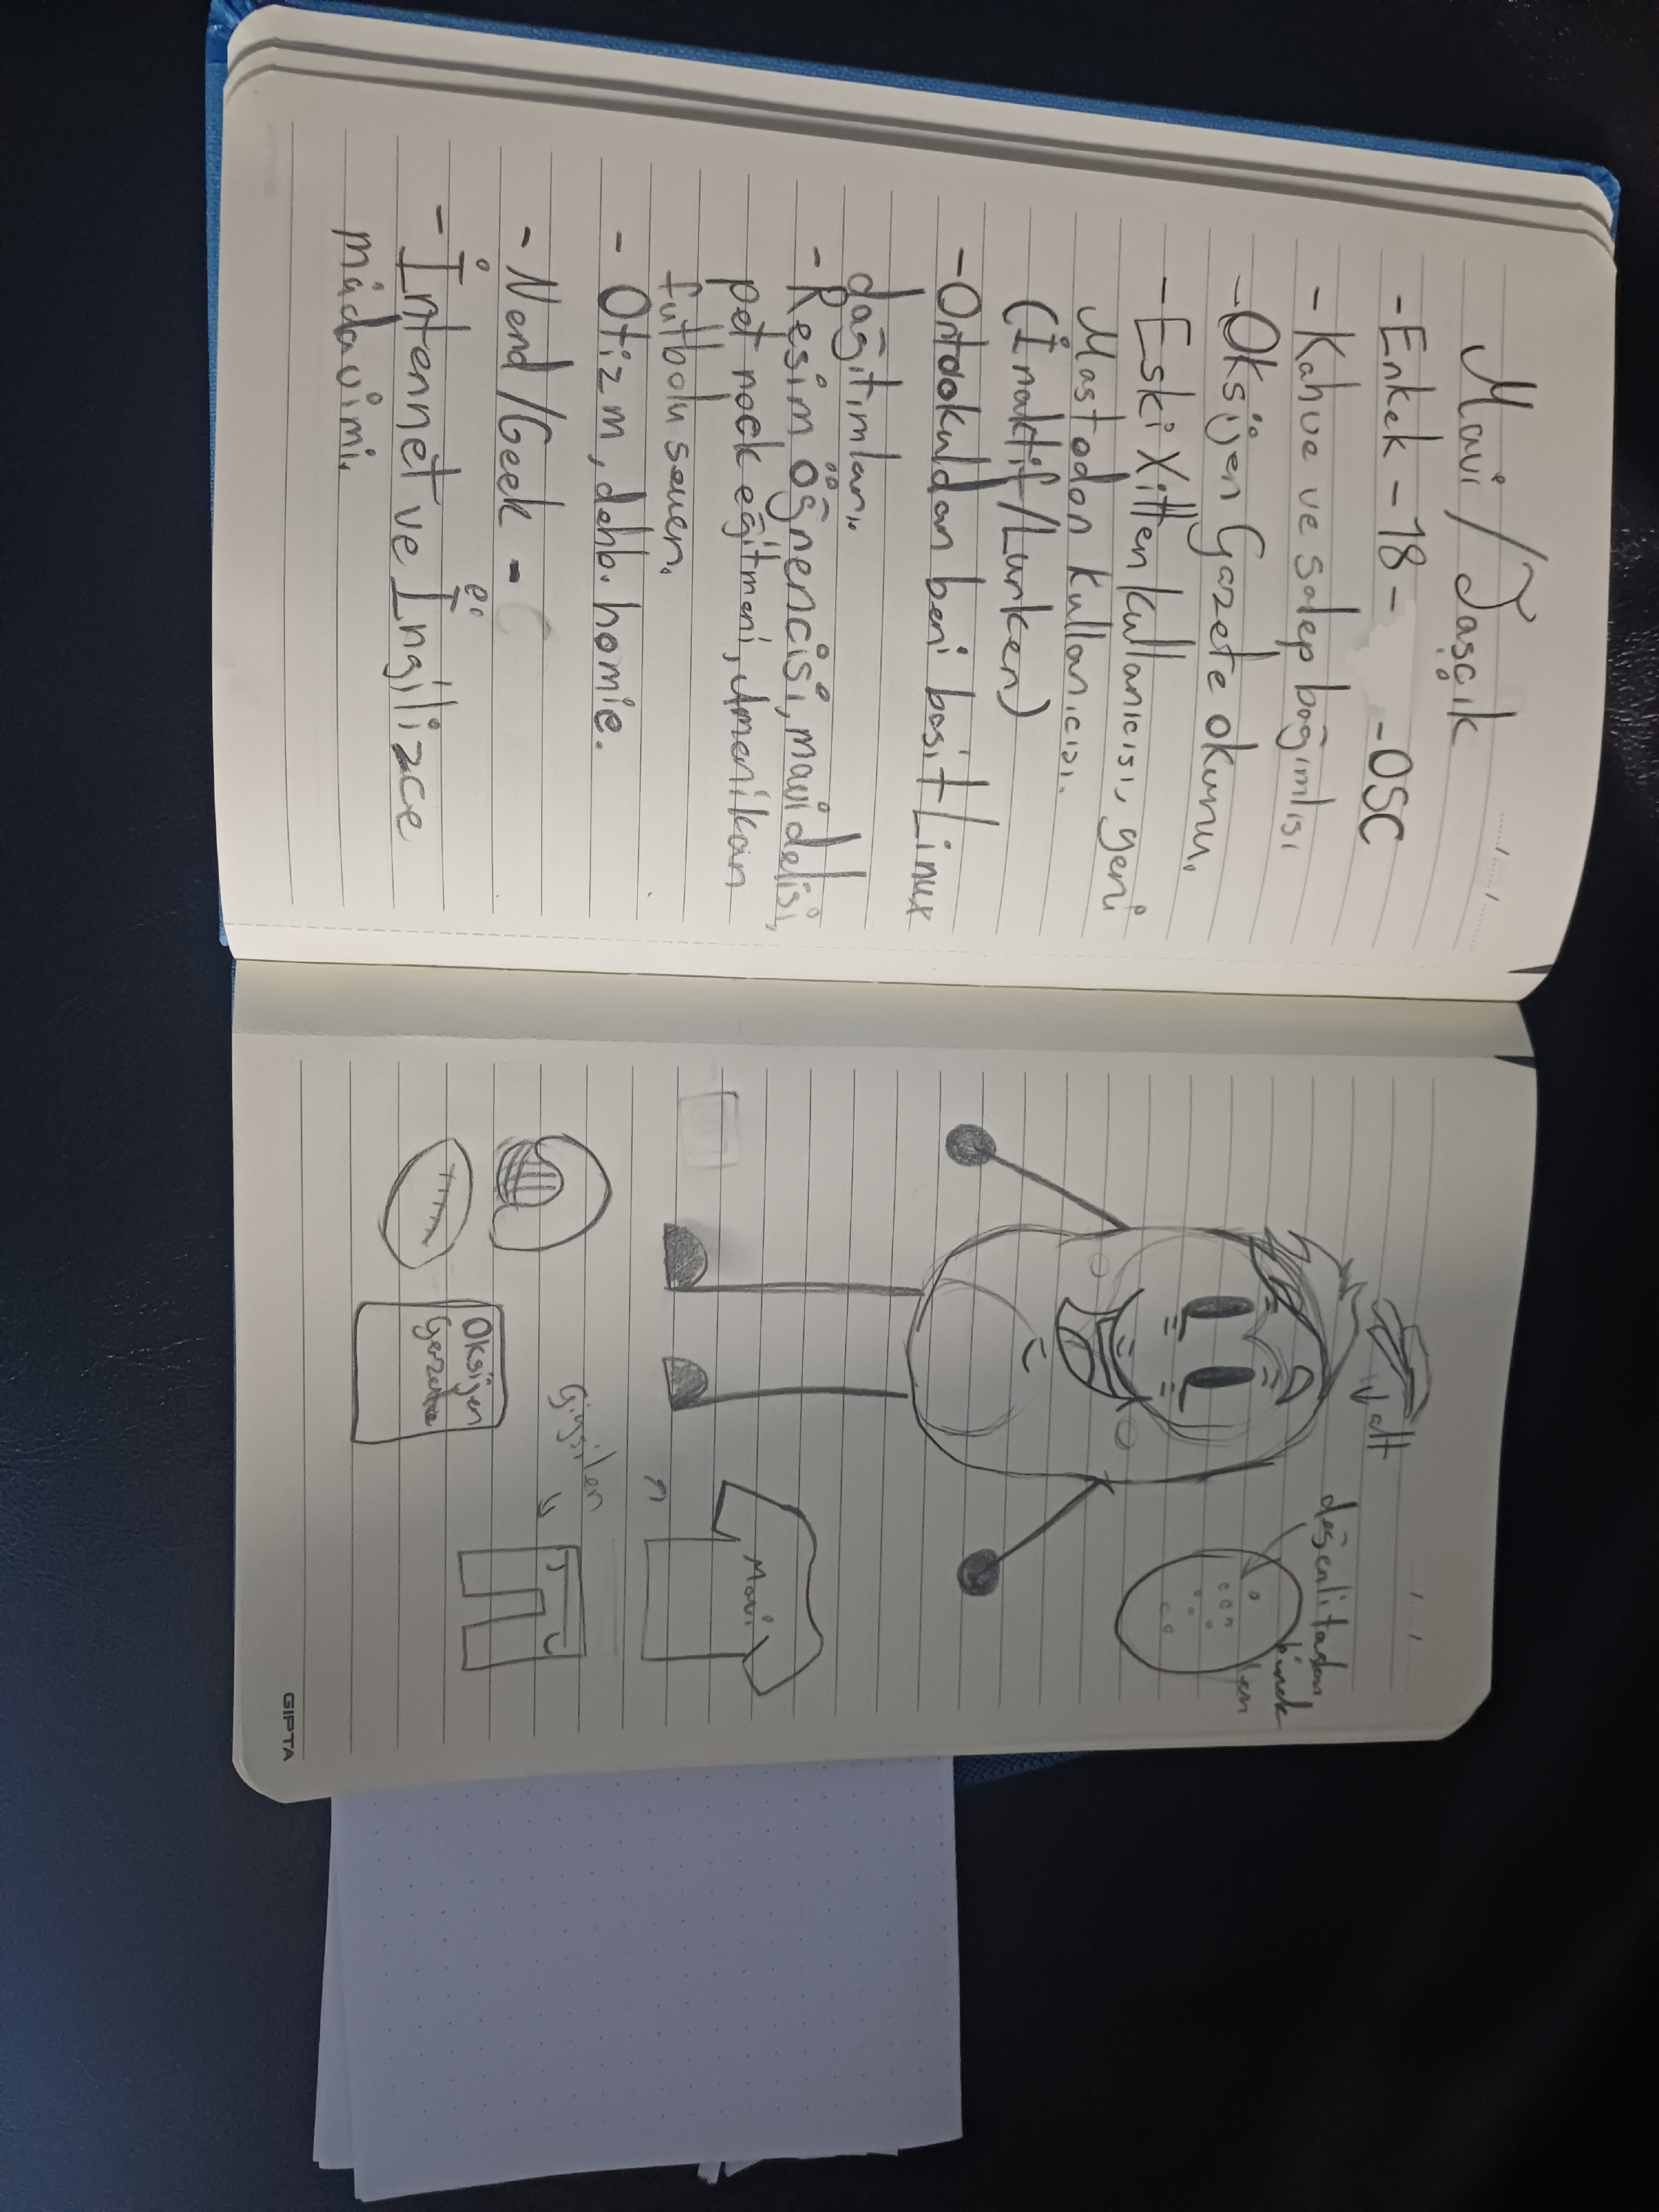 Mavi / Taşçık
- Erkek - 18 - -OSC
- Kahve ve salep bağımlısı
- Oksijen Gazete okuru.
- Eski Xitter kullanıcısı, yeni
Mastodon kullanıcısı.
(İnaktif/Lurker)
- Ortaokuldan beri basit Linux
dağıtımları.
- Resim öğrencisi, mavi delisi,
pet rock eğitmeni, Amerikan
futbolu seven.
- Otizm, dehb. homie.
- Nerd/Geek -
- İnternet ve İngilizce
müdavimi.
desenli taştan
kürek
ler
Mavi
Giysiler
Oksijen
Gazete
GIPTA